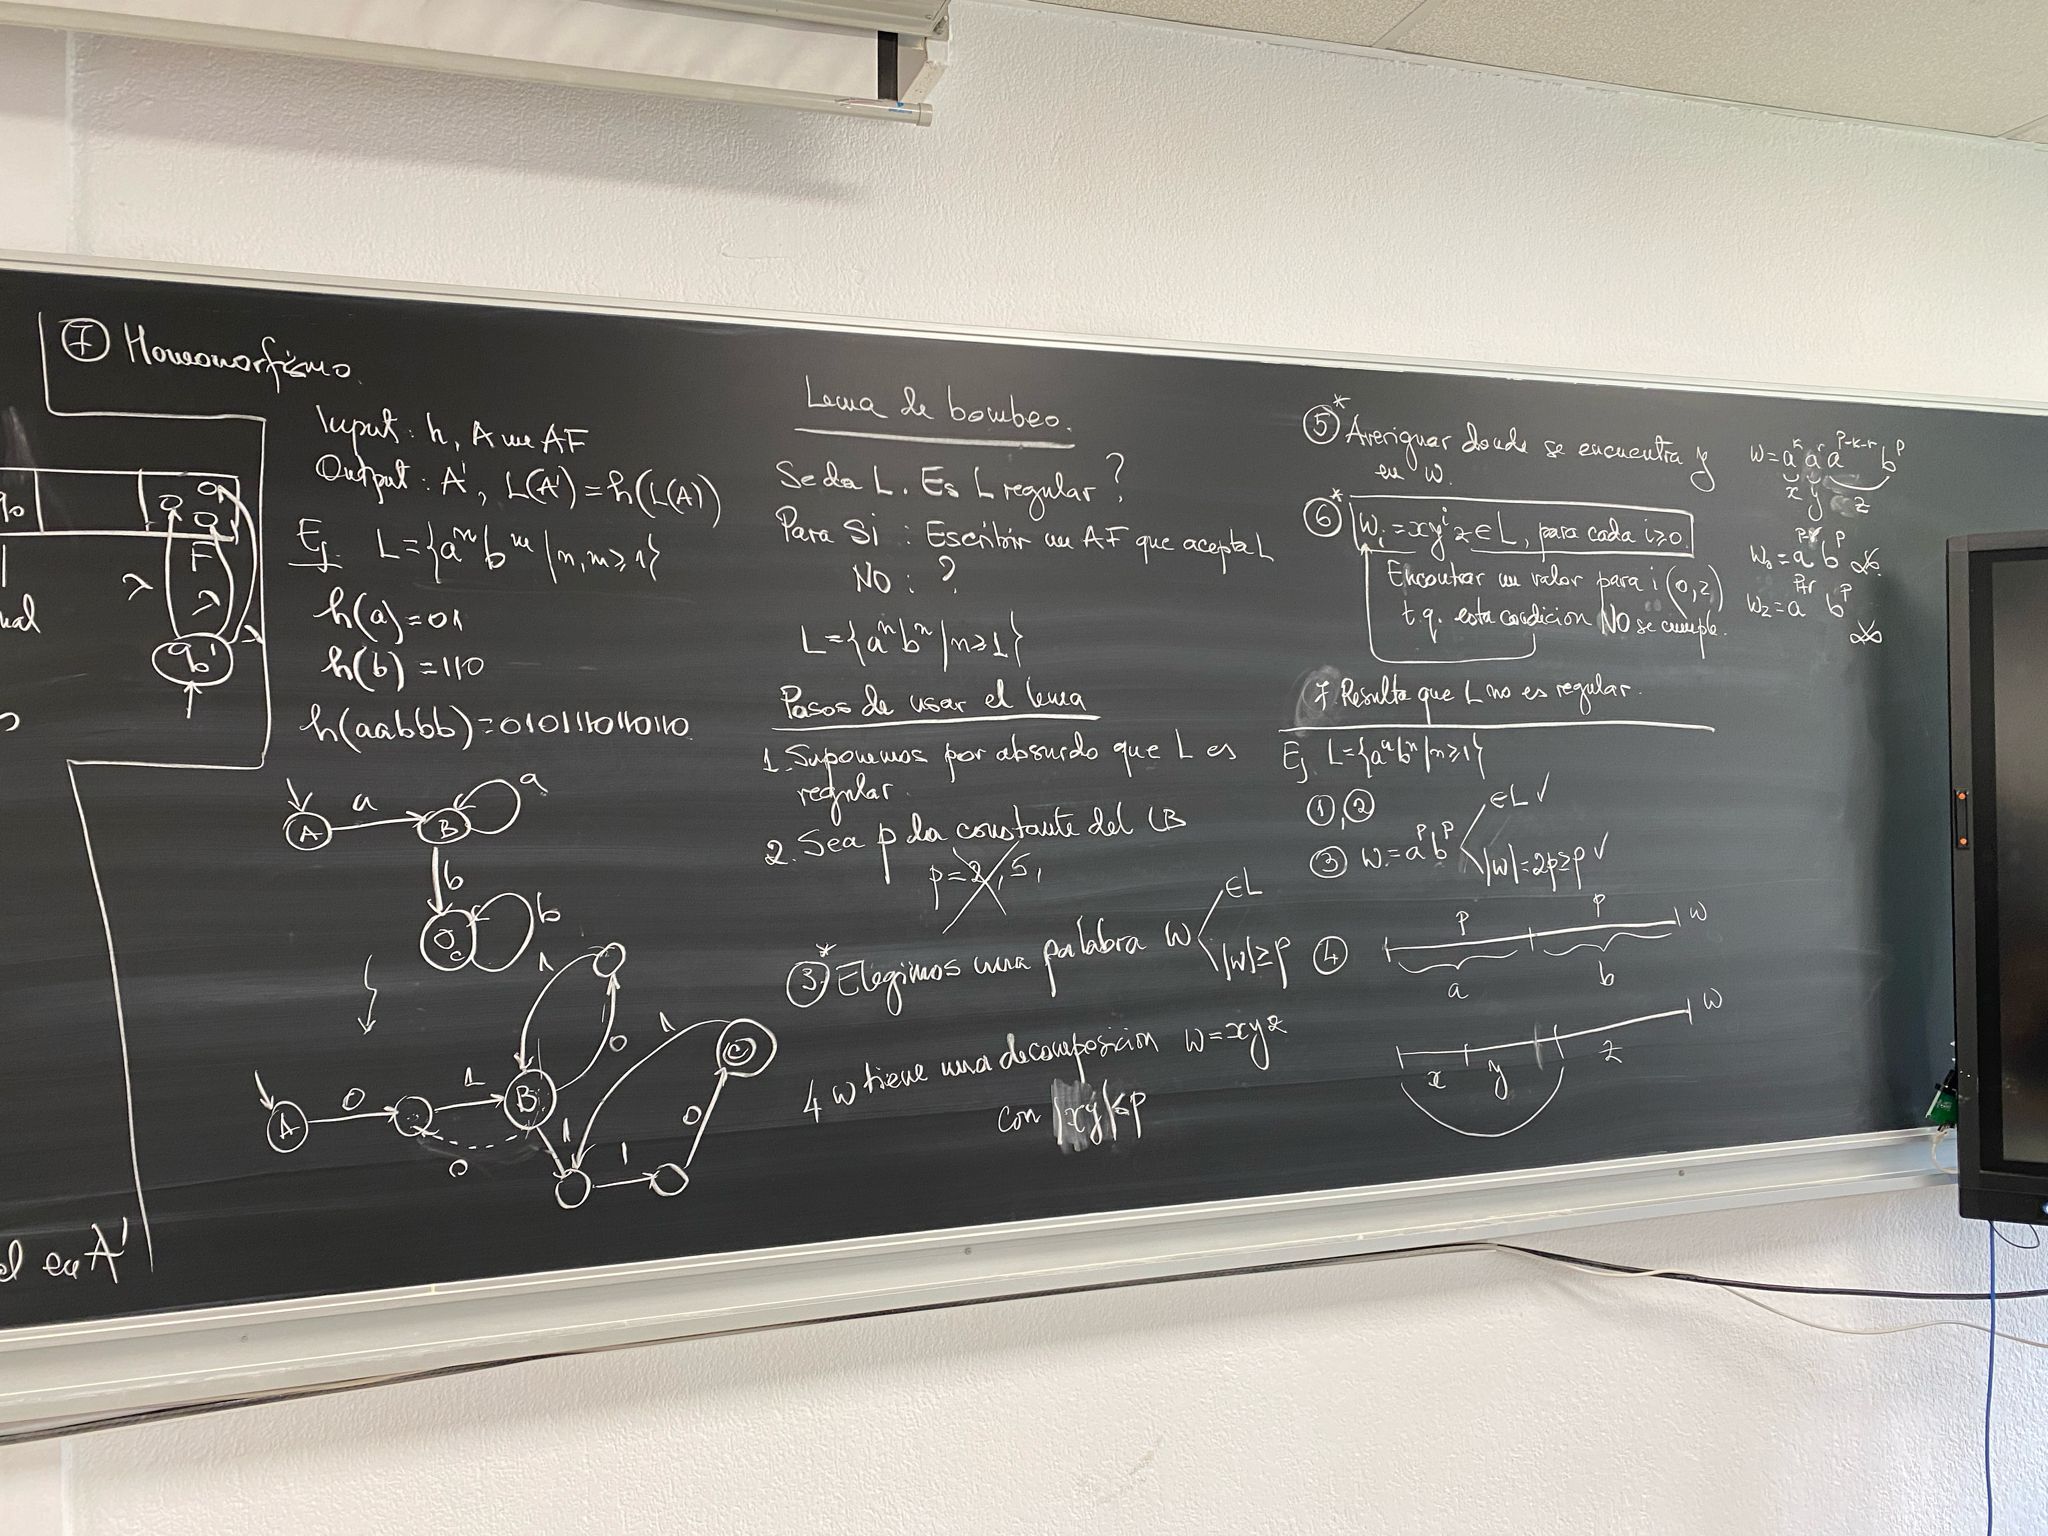 7 Homomorfismo.
Input: h, A un AF
Output: A', L(A')=h(L(A))
Ej. L={aⁿbᵐ|n,m≥1}
h(a)=01
h(b)=110
h(aabbb)=0101110110110
a
A
B
a
b
b
C
F
λ
λ
q₀'
el en A'
A
0
1
B
1
0
1
0
0
1
1
C
Lema de bombeo.
Se da L. Es L regular?
Para Si : Escribir un AF que acepta L
NO : ?
L={aⁿbⁿ|n≥1}
Pasos de usar el lema
1. Suponemos por absurdo que L es
regular.
2. Sea p la constante del LB
p=2,5,
3.* Elegimos una palabra w
∈L
|w|≥p
4 w tiene una decomposicion w=xyz
con |xy|≤p
5* Averiguar donde se encuentra y
en w.
6* wᵢ=xyⁱz∈L, para cada i≥0.
Encontrar un valor para i (0,2)
t.q. esta condicion NO se cumple.
7. Resulta que L no es regular.
w=aᵏaʳaᵖ⁻ᵏ⁻ʳbᵖ
x y z
w₀=aᵖ⁻ʳbᵖ
w₂=aᵖ⁺ʳbᵖ
Ej L={aⁿbⁿ|n≥1}
1,2
3 w=aᵖbᵖ
∈L ✓
|w|=2p≥p ✓
4
p p w
a b
w
x y z